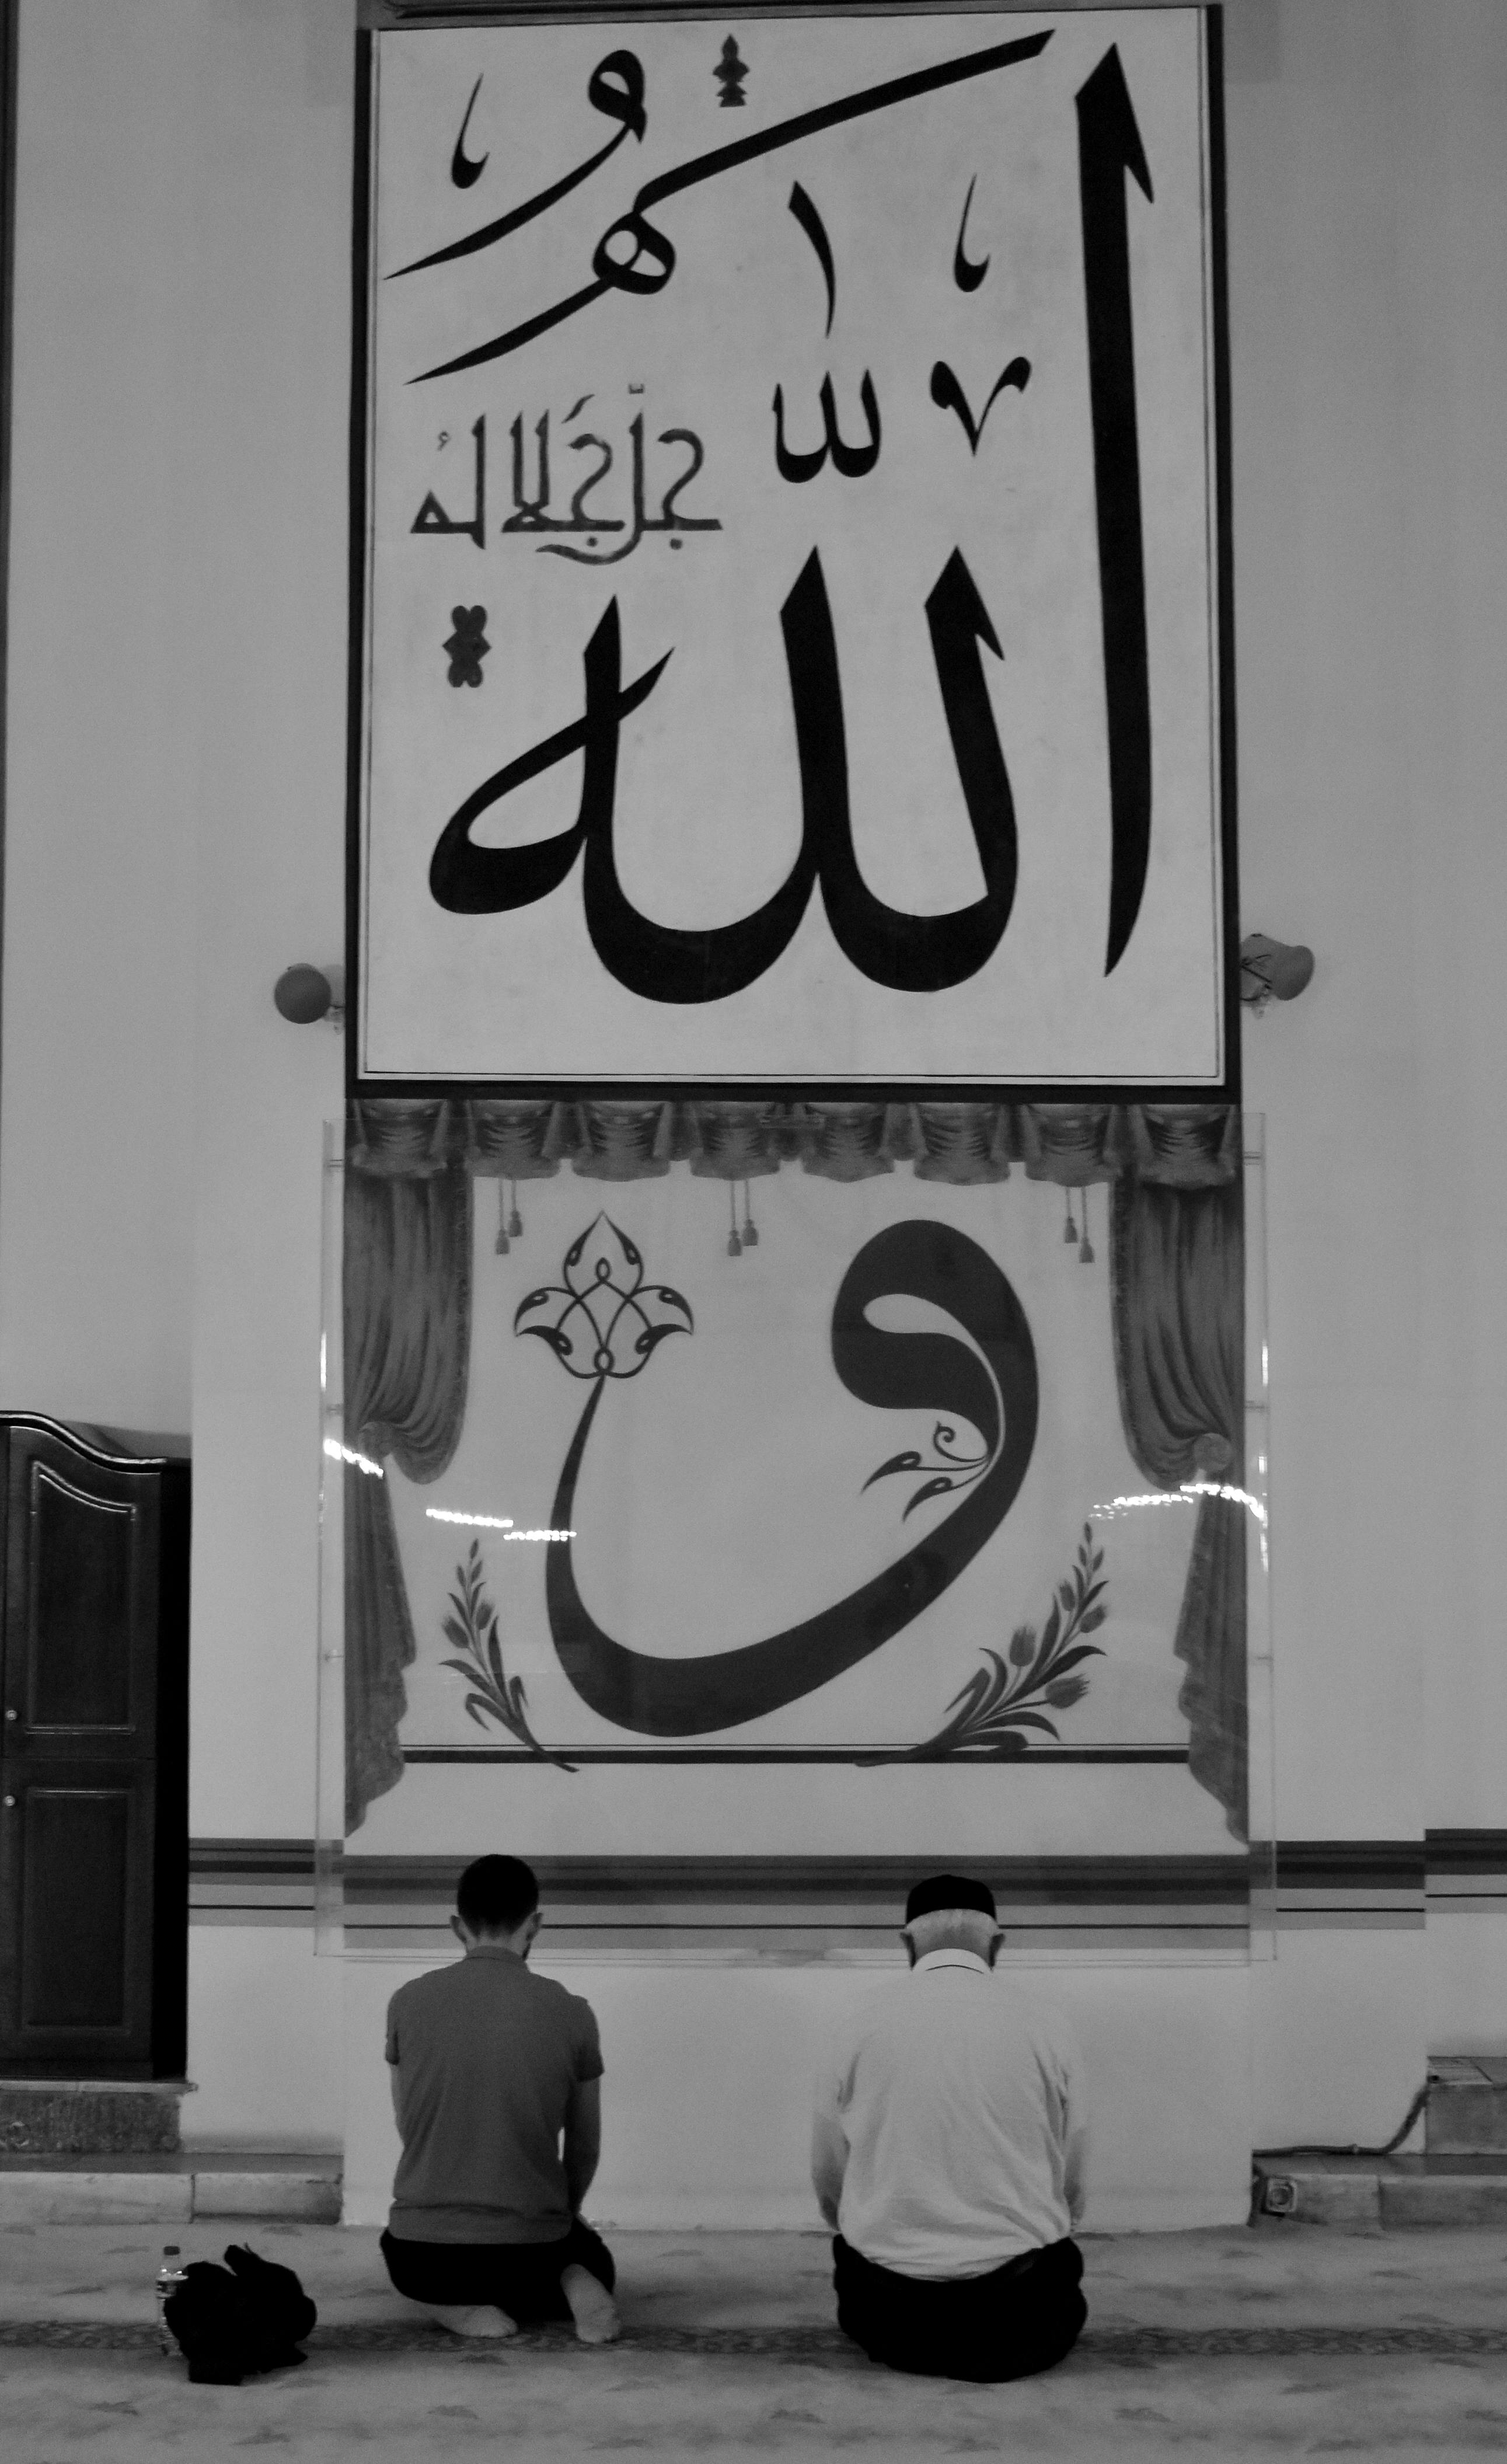 الله
جل جلاله
و